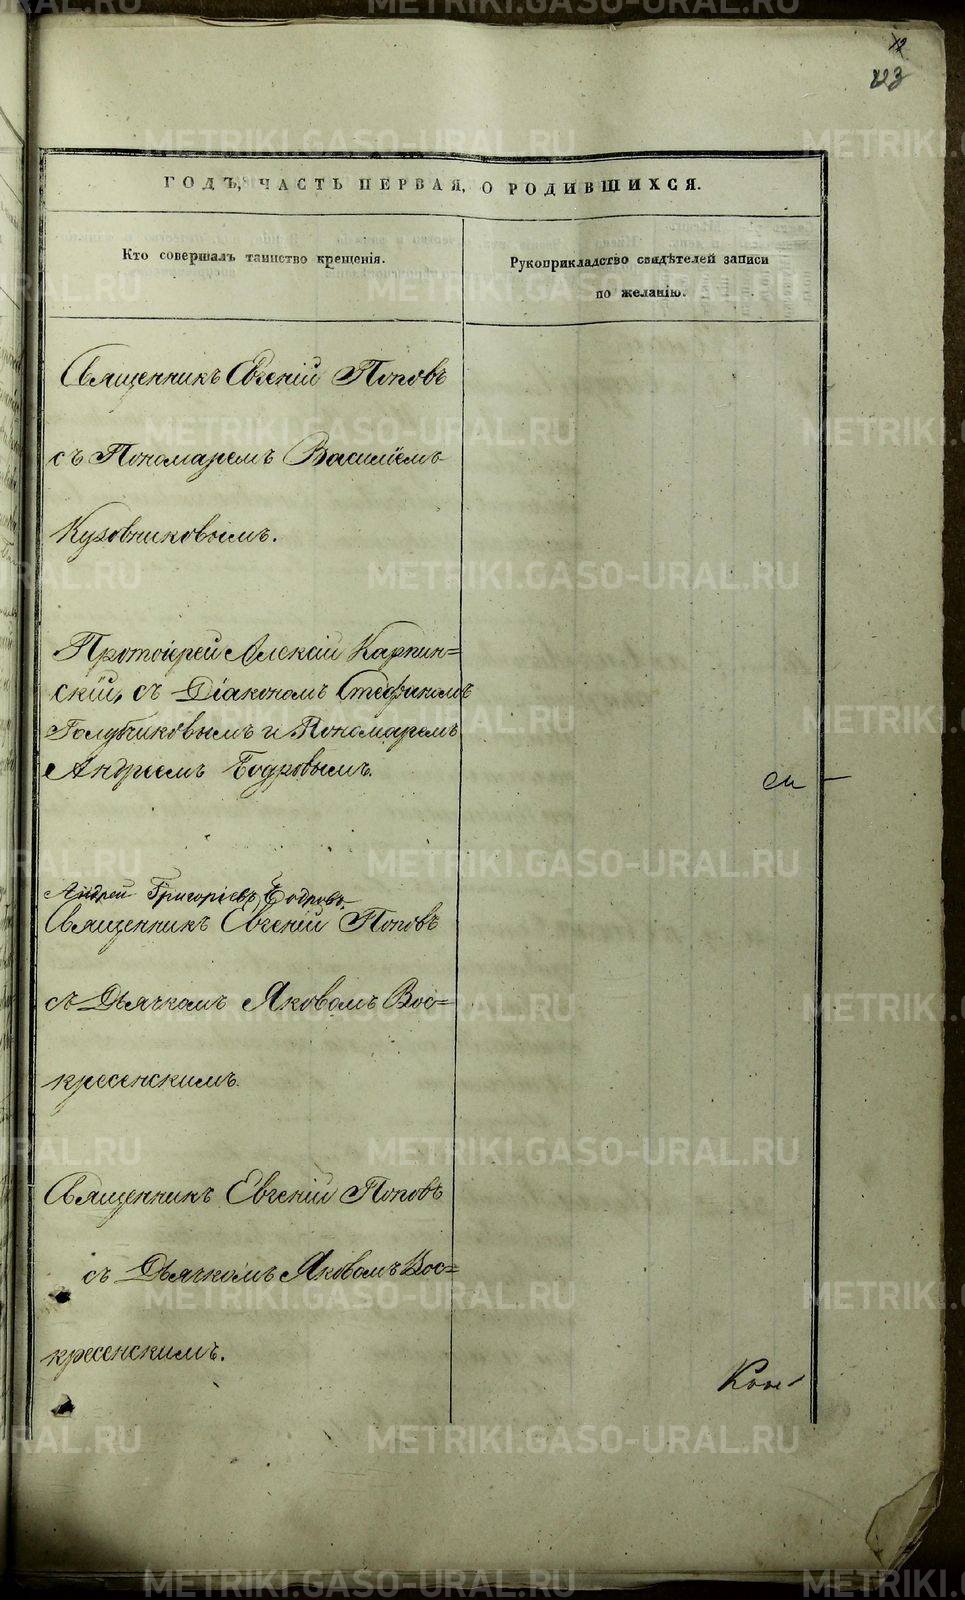 12
223
ГОДЪ, ЧАСТЬ ПЕРВАЯ, О РОДИВШИХСЯ.
Кто совершалъ таинство крещенія.
Рукоприкладство свидѣтелей записи
по желанію.
Священникъ Евгеній Поповъ
съ Пономаремъ Василіемъ
Кузовниковымъ.
Протоіерей Алексій Карпин=
скій, съ Діакономъ Стефаномъ
Голубчиковымъ и Пономаремъ
Андреемъ Бодровымъ.
Андрей Григоріевъ Бодровъ.
Священникъ Евгеній Поповъ
съ Дьячкомъ Яковомъ Вос=
кресенскимъ.
Священникъ Евгеній Поповъ
съ Дьячкомъ Яковомъ Вос=
кресенскимъ.
METRIKI.GASO-URAL.RU